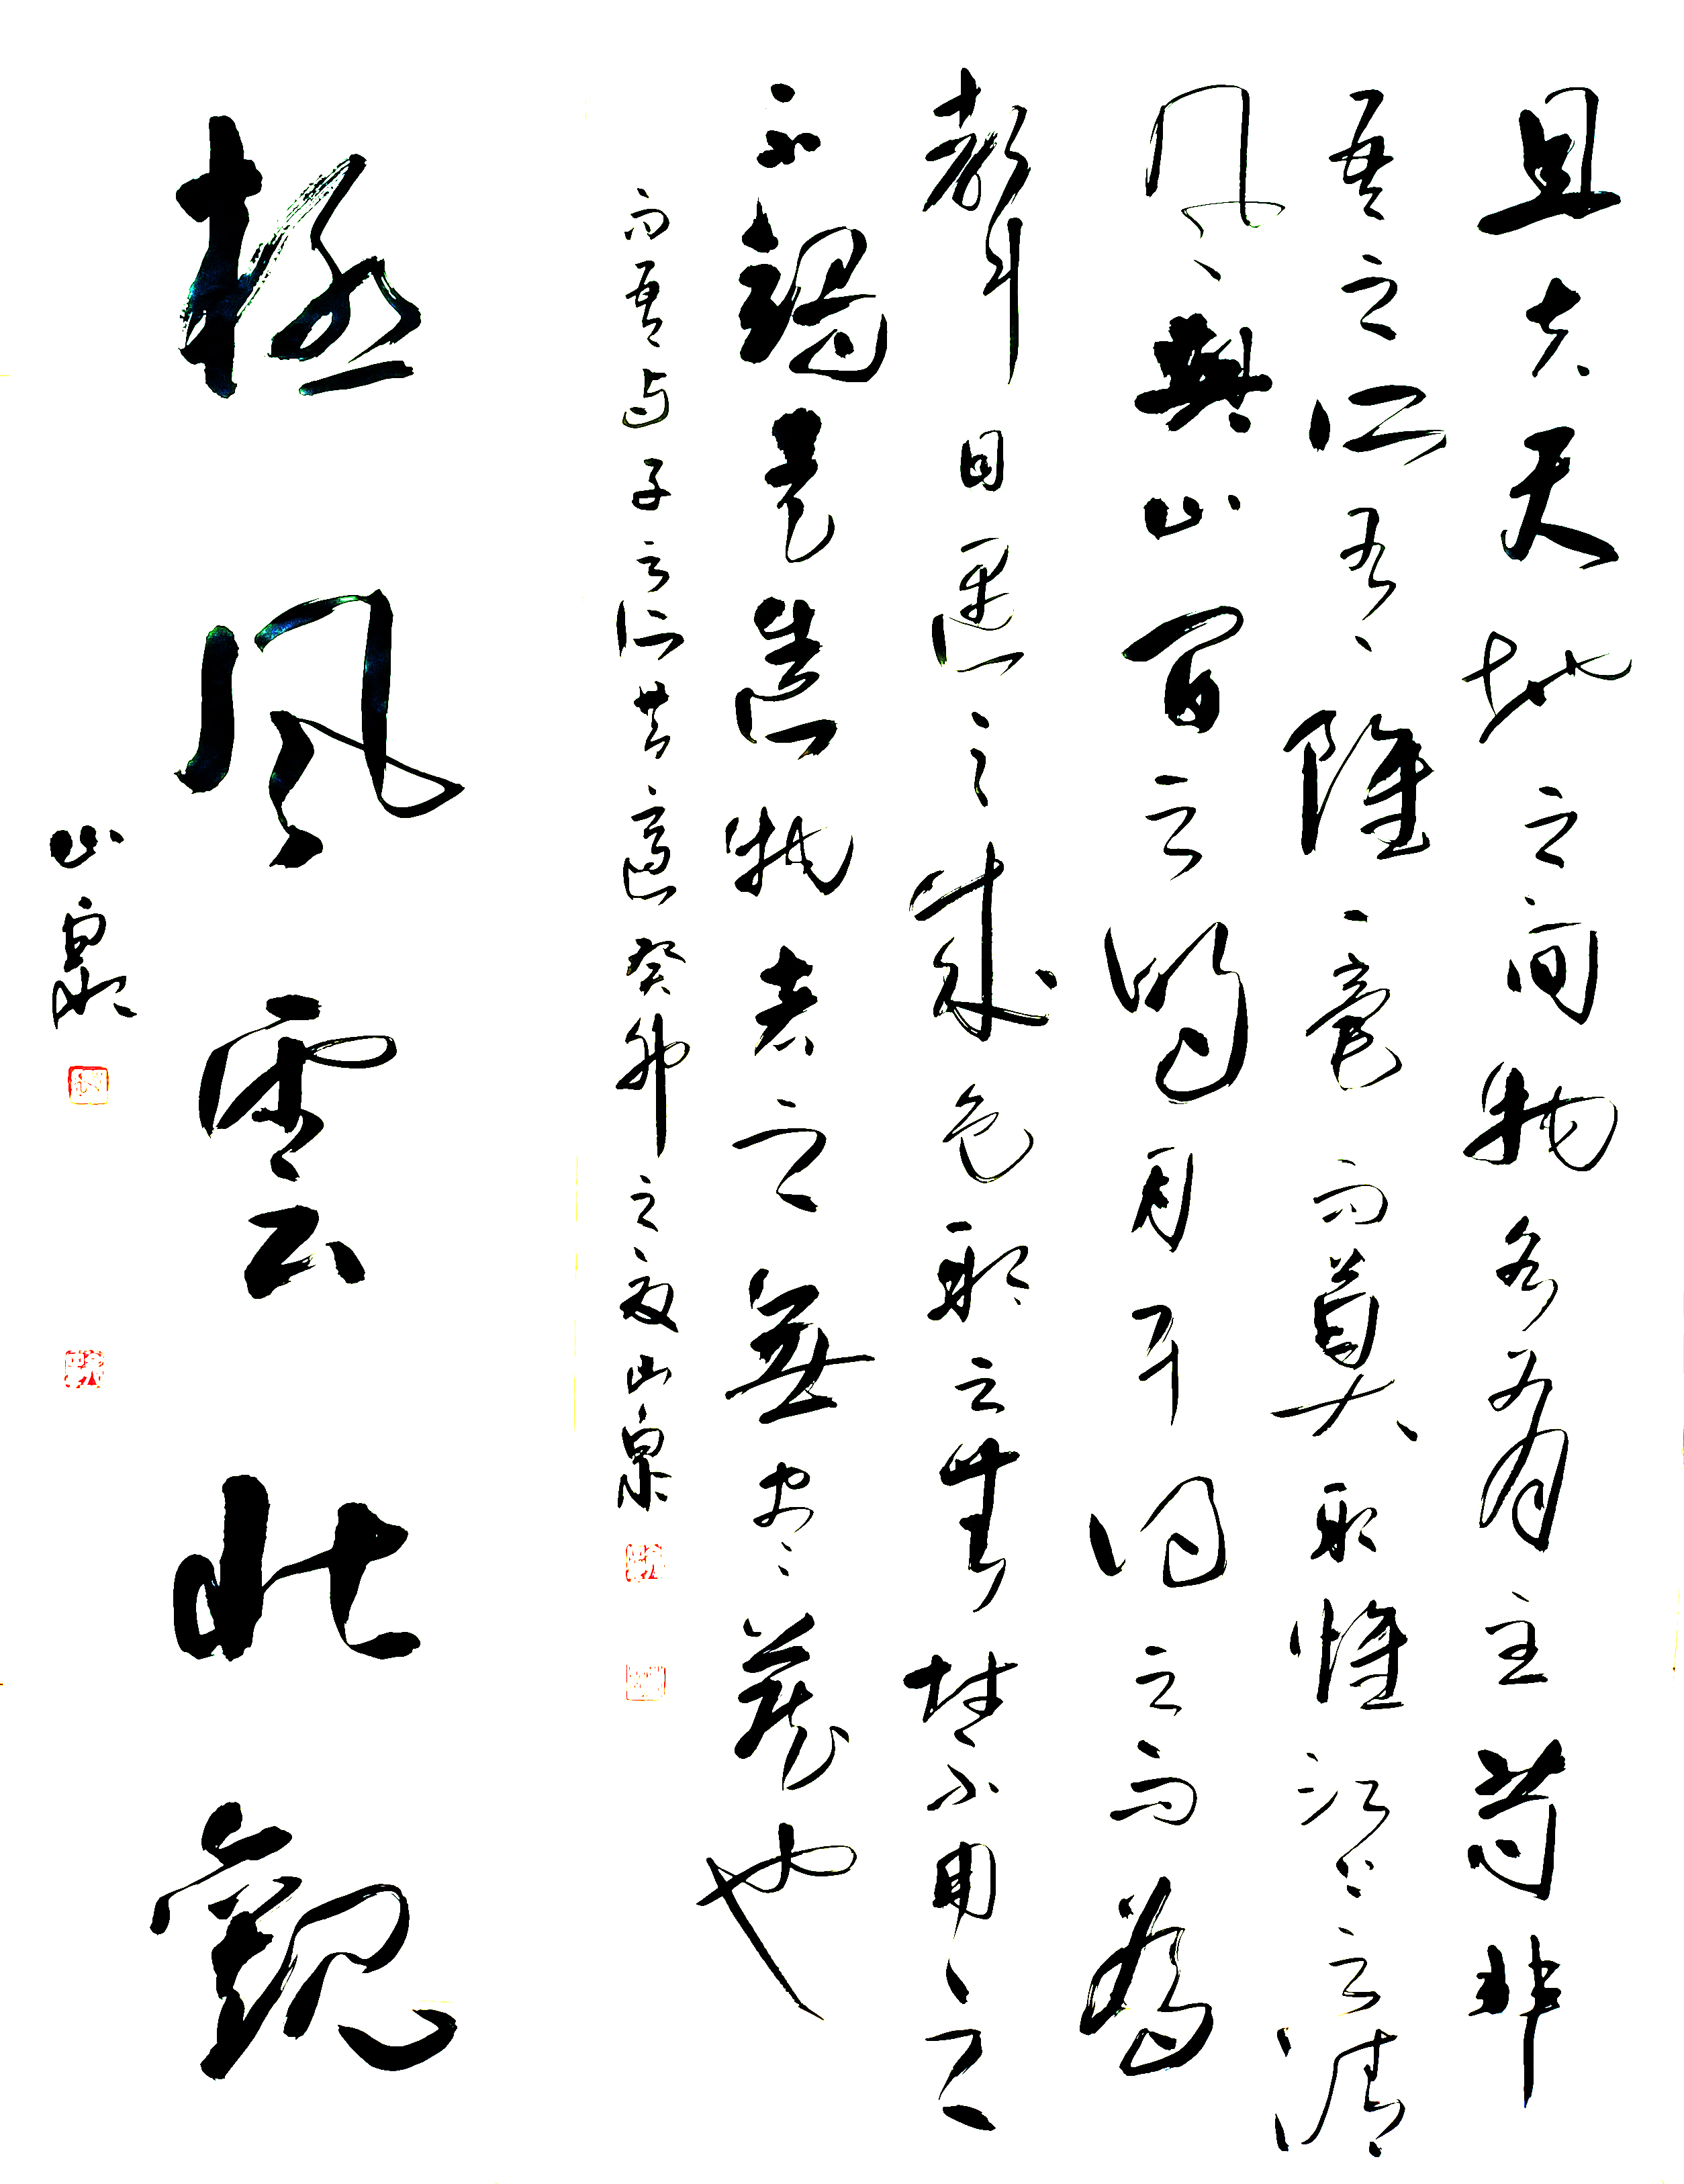 且夫天地之间物各有主苟非
吾之所有雖一毫而莫取惟江上之清
风與山间之明月耳得之而為
聲目遇之成色取之無禁用之
不竭是造物者之無盡藏也
而吾与子之所共適癸卯之夏山泉
極风雲此觀
山泉